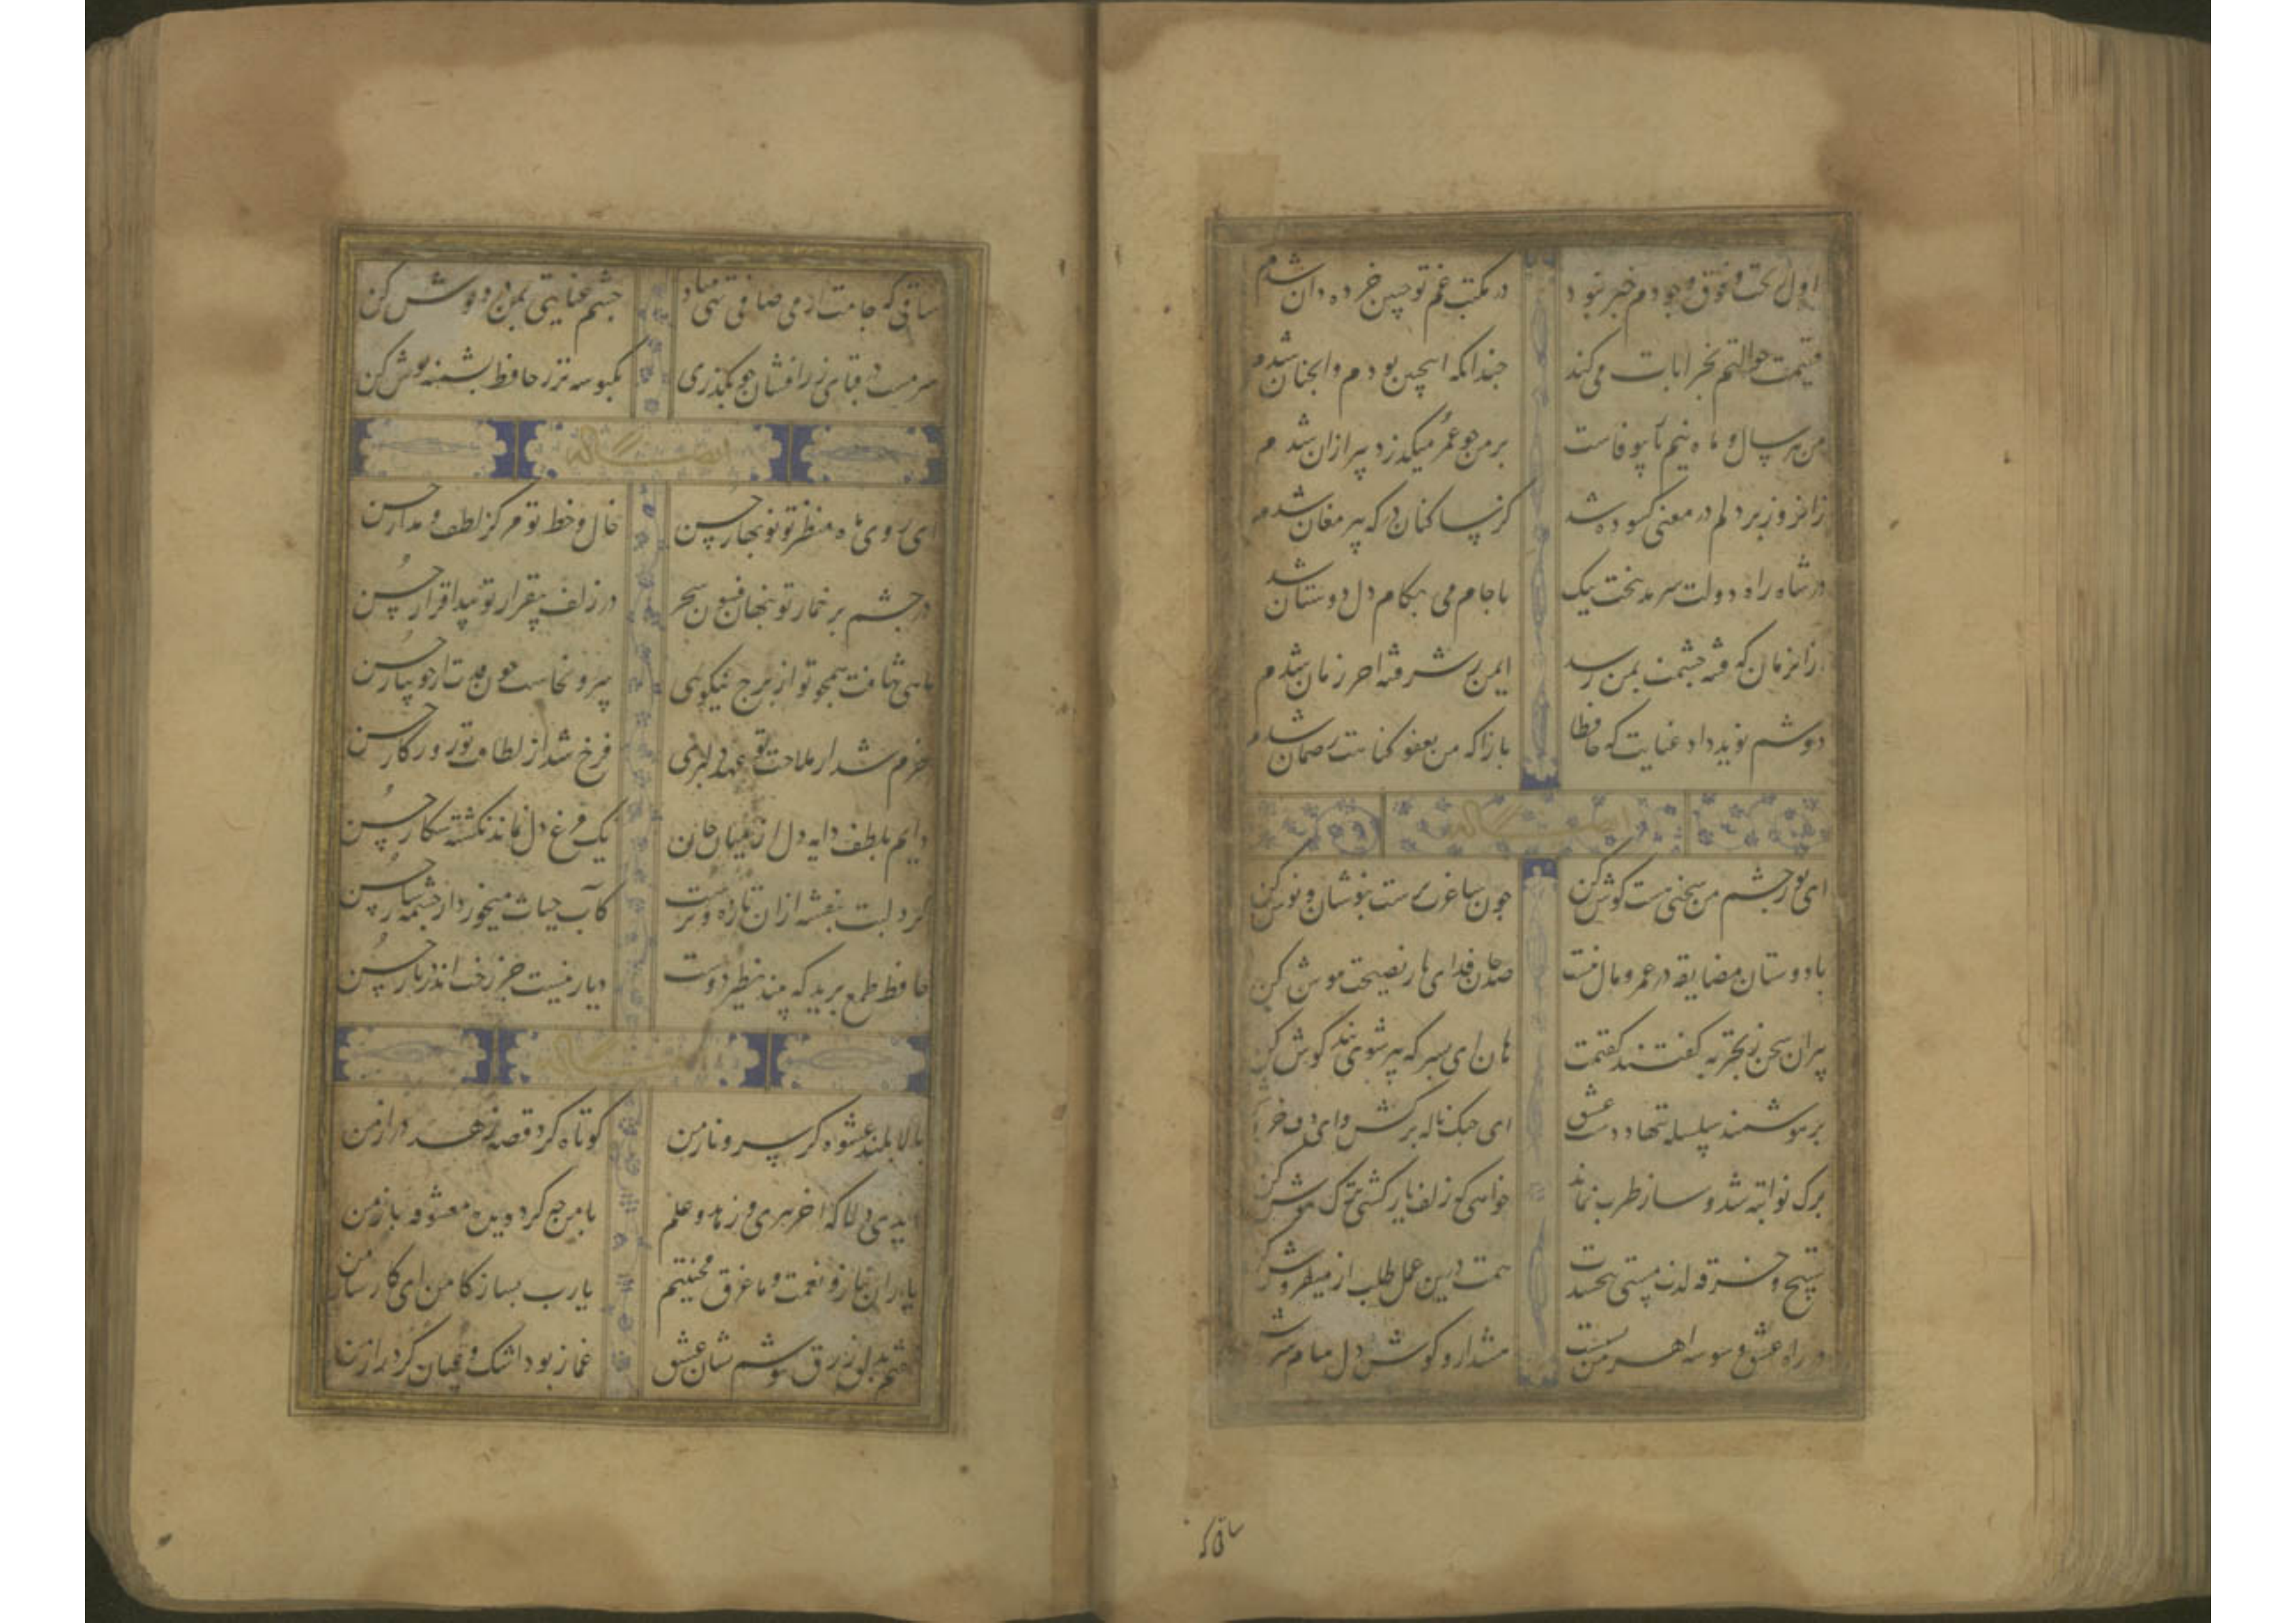 اول ز تحت و فوق وجودم خبر نبود در مکتب غم تو چنین خرده دان شدم
قسمت حوالتم بخرابات می کند چندانکه اینچنین بودم و آنچنان شدم
من پیر سال و ماه نیم یار بیوفاست بر من چو عمر میگذرد پیر ازان شدم
زانروز بر دلم در معنی گشوده شد کز ساکنان درکه پیر مغان شدم
در شاه راه دولت سرمد بتخت بیک با جام می بکام دل دوستان شدم
از انزمان که فتنه چشمت بمن رسید ایمن ز شر فتنه آخر زمان شدم
دوشم نوید داد عنایت که حافظا بازآ که من بعفو کناهت ضمان شدم
ایضا له
ای نور چشم من سخنی هست کوش کن چون ساغرت پرست بنوشان و نوش کن
با دوستان مضایقه در عمر و مال نیست صد جان فدای یار نصیحت نیوش کن
پیران سخن بتجربه کفتند کفتمت هان ای پسر که پیر شوی پند کوش کن
بر هوشمند سلسله ننهاد دست عشق ای چنک ناله برکش و ای دف خر
برک نوا تبه شد و ساز طرب نماند خواهی که زلف یار کشی ترک هوش کن
تسبیح و خرقه لذت مستی نبخشدت همت درین عمل طلب از میفروش
در راه عشق وسوسه اهرمن بسیست هشدار و کوش دل بپیام سرش
ساقی که
ساقی که جامت از می صافی تهی مباد چشم عنایتی بمن درد نوش کن
سرمست در قبای زرافشان چو بگذری یکبوسه نذر حافظ پشمینه پوش کن
ایضا له
ای روی ماه منظر تو نو بهار حسن خال و خط تو مرکز لطف و مدار حسن
در چشم پر خمار تو پنهان فسون سحر در زلف بیقرار تو پیدا قرار حسن
ماهی نتافت همچو تو از برج نیکویی سروی نخاست چون قدت از جویبار حسن
خرم شد از ملاحت تو عهد دلبری فرخ شد از لطافت تو روزگار حسن
دایم بلطف دایه دل از میان جان یک مرغ دل نماند نکشته شکار حسن
کرد لبت بنفشه ازان تازه و ترست کآب حیات میخورد از چشمه سار حسن
حافظ طمع برید که بیند نظیر دوست دیار نیست جز رخت اندر دیار حسن
ایضا له
بالا بلند عشوه کر سرو ناز من کوتاه کرد قصه زهد دراز من
دیدی دلا که آخر پیری و زهد و علم با من چه کرد دیده معشوقه باز من
یاران بناز و نعمت و ما غرق محنتیم یارب بساز کار من ای کارساز من
گفتم بدلق زرق بپوشم نشان عشق غماز بود اشک و عیان کرد راز من